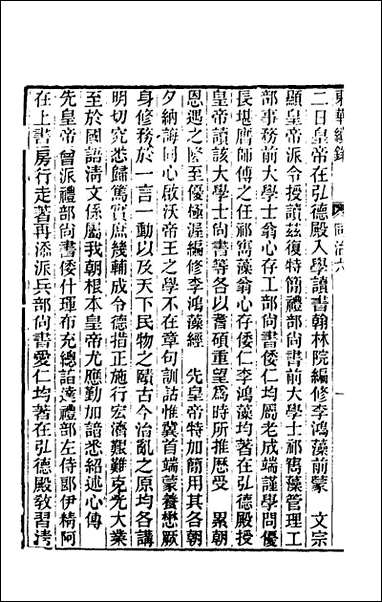 東華續錄 同治六 一
二日皇帝在弘德殿入學讀書翰林院編修李鴻藻前蒙　文宗
顯皇帝派令授讀茲復特簡禮部尚書前大學士祁寯藻管理工
部事務前大學士翁心存工部尚書倭仁均屬老成端謹學問優
長堪膺師傅之任祁寯藻翁心存倭仁李鴻藻均著在弘德殿授
皇帝讀該大學士尚書等各以耆碩重望爲時所推歷受　累朝
恩遇之隆至優極渥編修李鴻藻　先皇帝特加簡用其各朝
夕納誨同心啟沃帝王之學不在章句訓詁惟冀首端蒙養懋厥
身修務於一言一動以及天下民物之賾古今治亂之原均各講
明切究悉歸篤實庶幾輔成令德措正施行宏濟艱難克光大業
至於國語淸文係屬我朝根本皇帝尤應勤加諳悉紹述心傳
先皇帝曾派禮部尚書倭什琿布充總諳達禮部左侍郎伊精阿
在上書房行走著再添派兵部尚書愛仁均著在弘德殿敎習淸